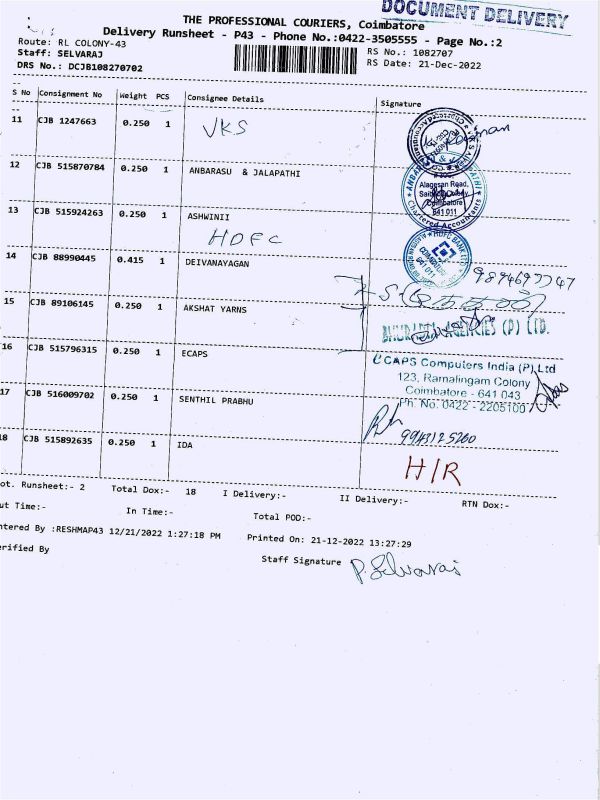 DOCUMENT DELIVERY
THE PROFESSIONAL COURIERS, Coimbatore
Delivery Runsheet - P43 - Phone No.:0422-3505555 - Page No.:2
Route: RL COLONY-43
RS No.: 1082707
Staff: SELVARAJ
RS Date: 21-Dec-2022
DRS No.: DCJB108270702
S No Consignment No Weight PCS Consignee Details Signature
11 CJB 1247663 0.250 1 VKS
12 CJB 515870784 0.250 1 ANBARASU & JALAPATHI
Alagesan Road,
Coimbatore
641 011
Chartered Accountants
13 CJB 515924263 0.250 1 ASHWINII
HDFC
14 CJB 88990445 0.415 1 DEIVANAYAGAN
HDFC BANK LTD
641 011
9894697747
15 CJB 89106145 0.250 1 AKSHAT YARNS
AGENCIES (P) LTD.
16 CJB 515796315 0.250 1 ECAPS
CAPS Computers India (P) Ltd
123, Ramalingam Colony
Coimbatore - 641 043
Ph. No. 0422 - 2205100
17 CJB 516009702 0.250 1 SENTHIL PRABHU
9943125260
18 CJB 515892635 0.250 1 IDA
H/R
ot. Runsheet:- 2 Total Dox:- 18 I Delivery:- II Delivery:- RTN Dox:-
ut Time:- In Time:- Total POD:-
ntered By :RESHMAP43 12/21/2022 1:27:18 PM Printed On: 21-12-2022 13:27:29
erified By
Staff Signature P. Selvaraj